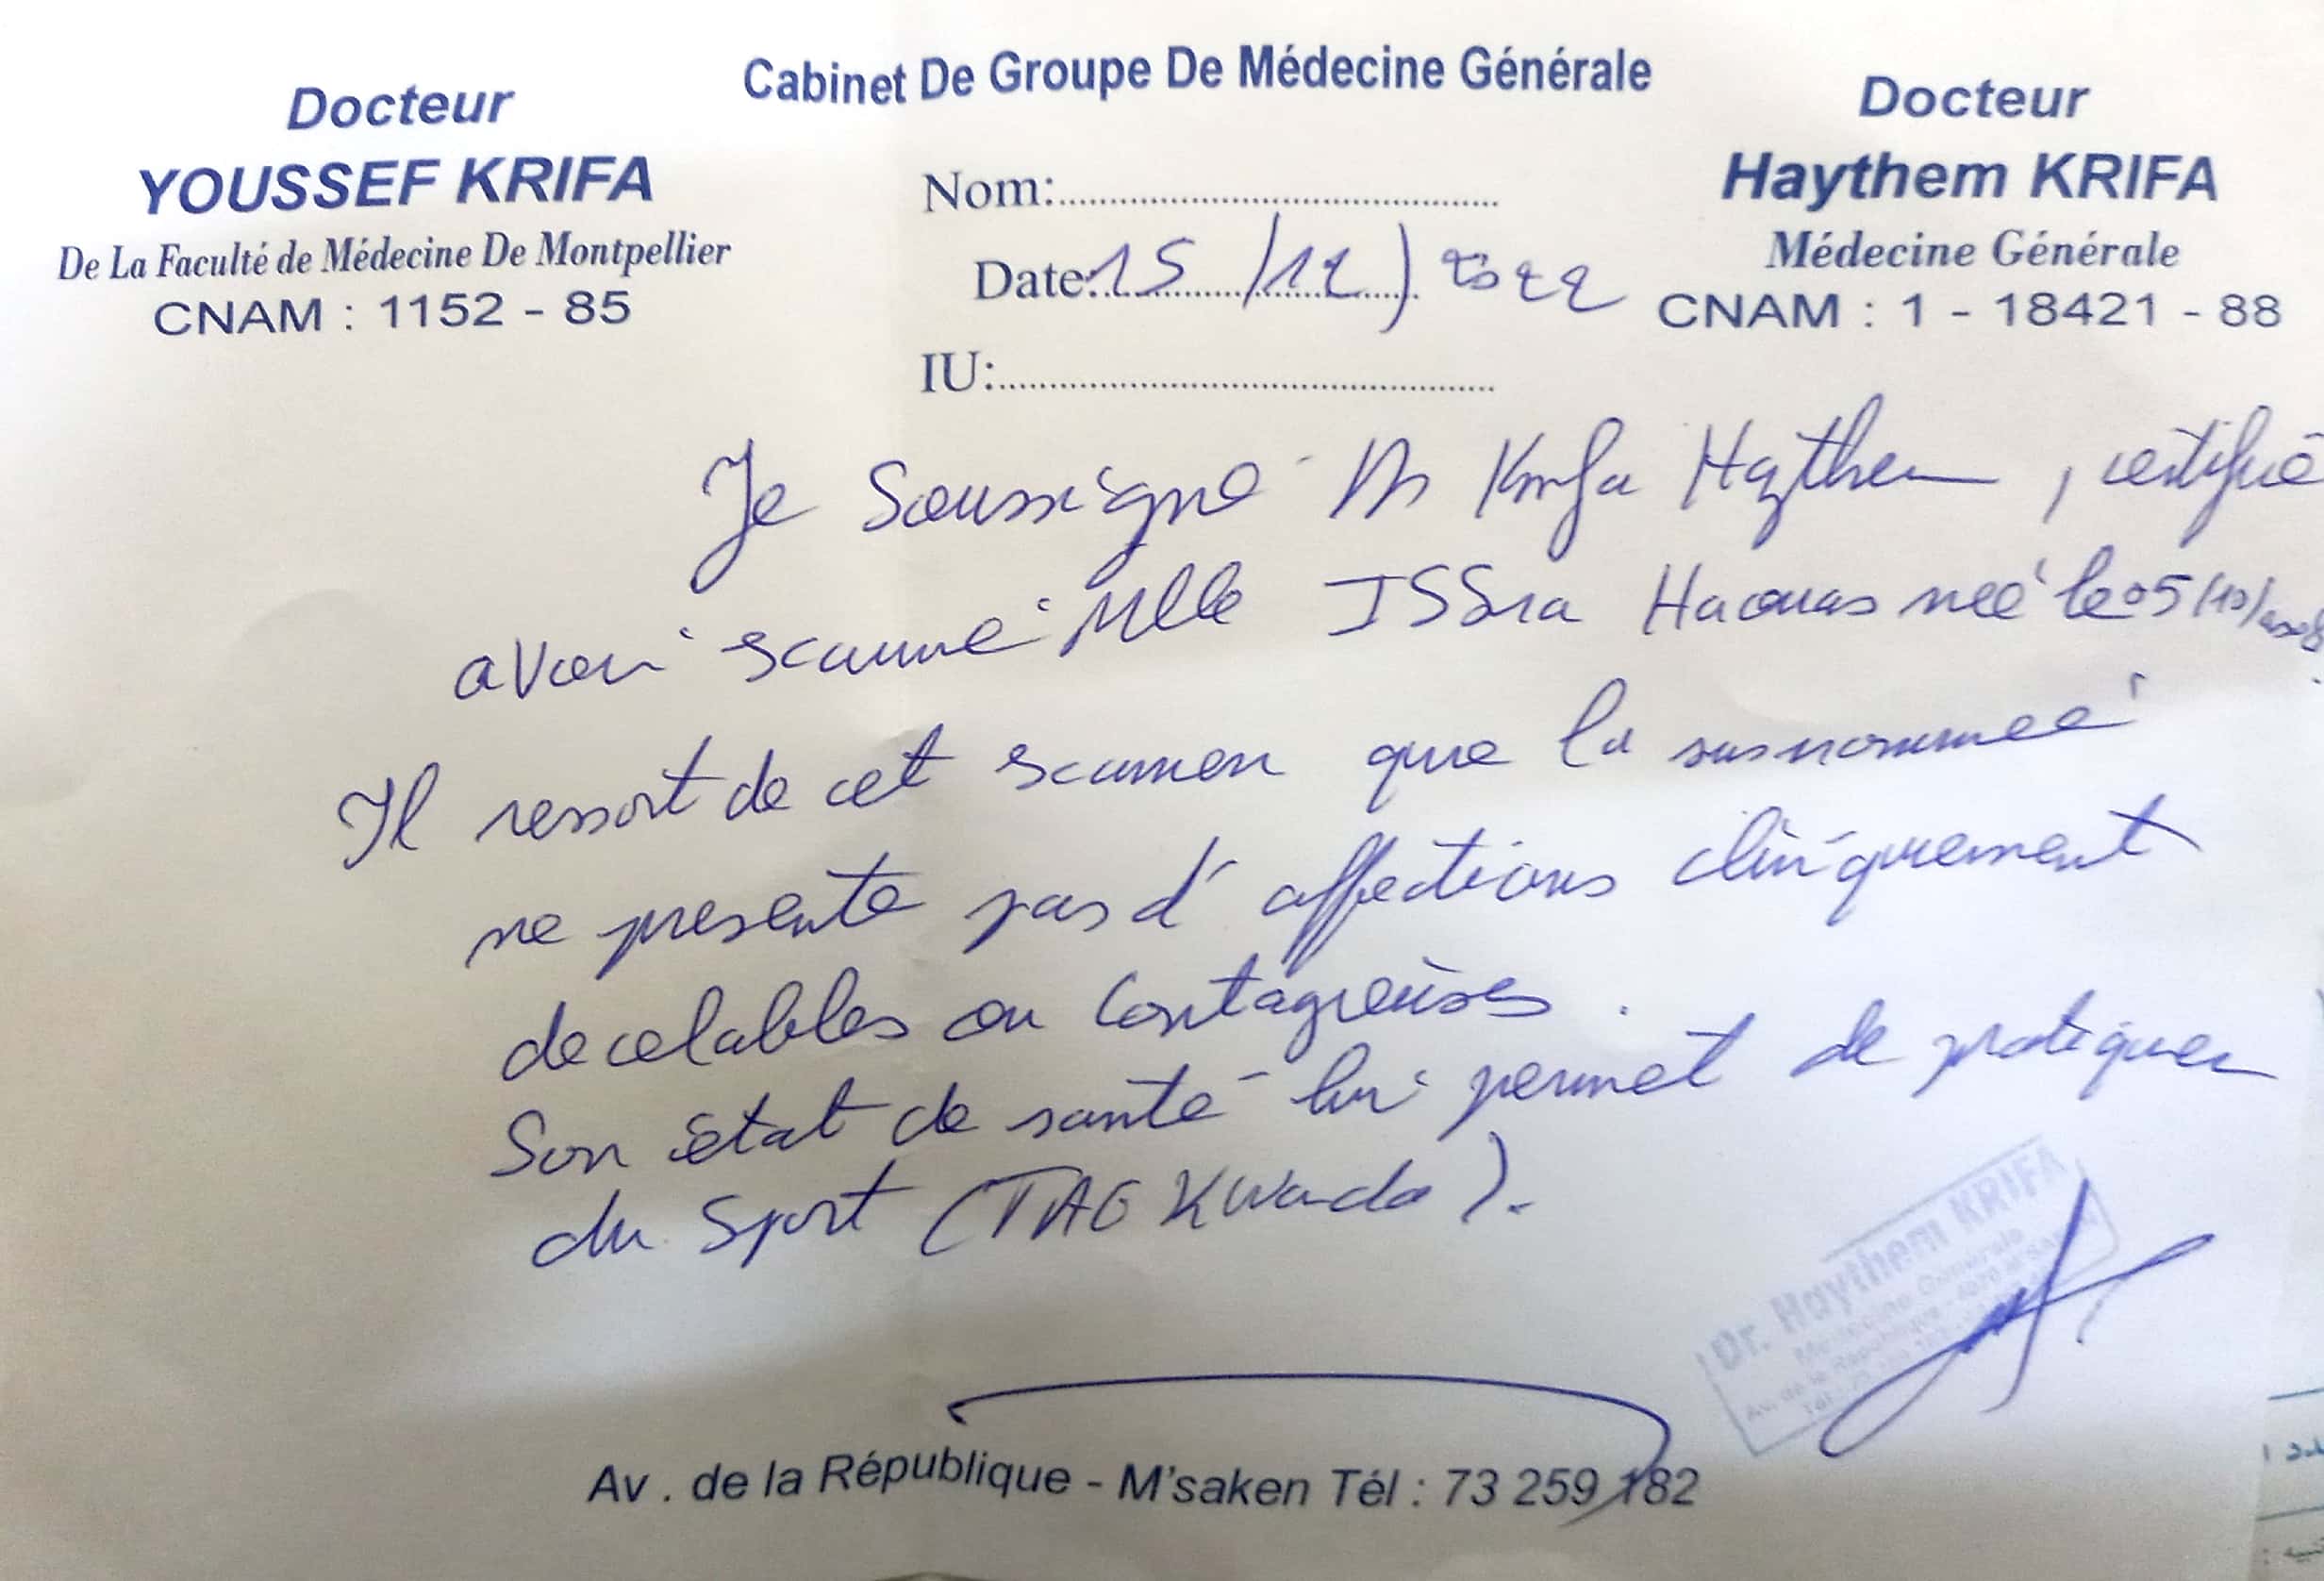 Cabinet De Groupe De Médecine Générale
Docteur
YOUSSEF KRIFA
De La Faculté de Médecine De Montpellier
CNAM : 1152 - 85
Docteur
Haythem KRIFA
Médecine Générale
CNAM : 1 - 18421 - 88
Nom:
Date: 15/12/2022
IU:
Je Soussigné Dr Krifa Haythem, certifie
avoir examiné Mlle ISSra Haouas née le 05/10/
Il ressort de cet examen que la susnommée
ne presente pas d'affections cliniquement
decelables ou Contagieuses.
Son état de santé lui permet de pratiquer
du Sport (TAEKwondo).
Dr. Haythem KRIFA
Médecine Générale
Av. de la République - M'saken Tél : 73 259 182